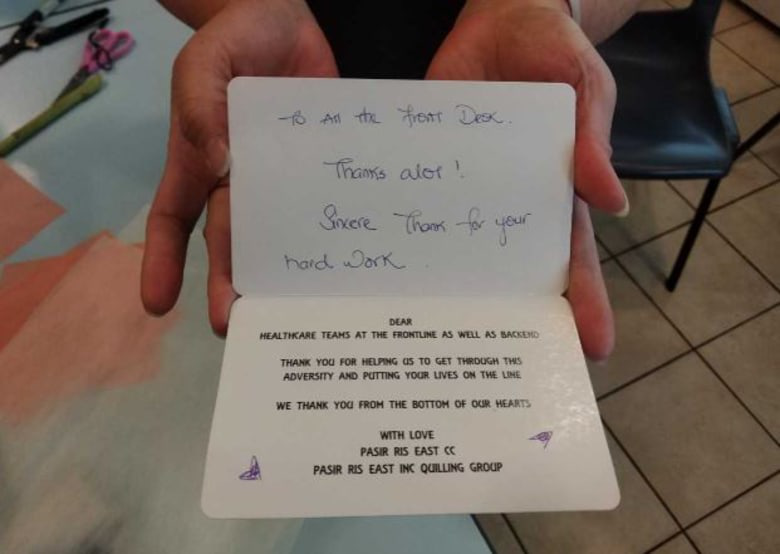 To All the Front Desk.
Thanks alot!
Sincere Thank for your
hard work.
DEAR
HEALTHCARE TEAMS AT THE FRONTLINE AS WELL AS BACKEND
THANK YOU FOR HELPING US TO GET THROUGH THIS
ADVERSITY AND PUTTING YOUR LIVES ON THE LINE
WE THANK YOU FROM THE BOTTOM OF OUR HEARTS
WITH LOVE
PASIR RIS EAST CC
PASIR RIS EAST INC QUILLING GROUP